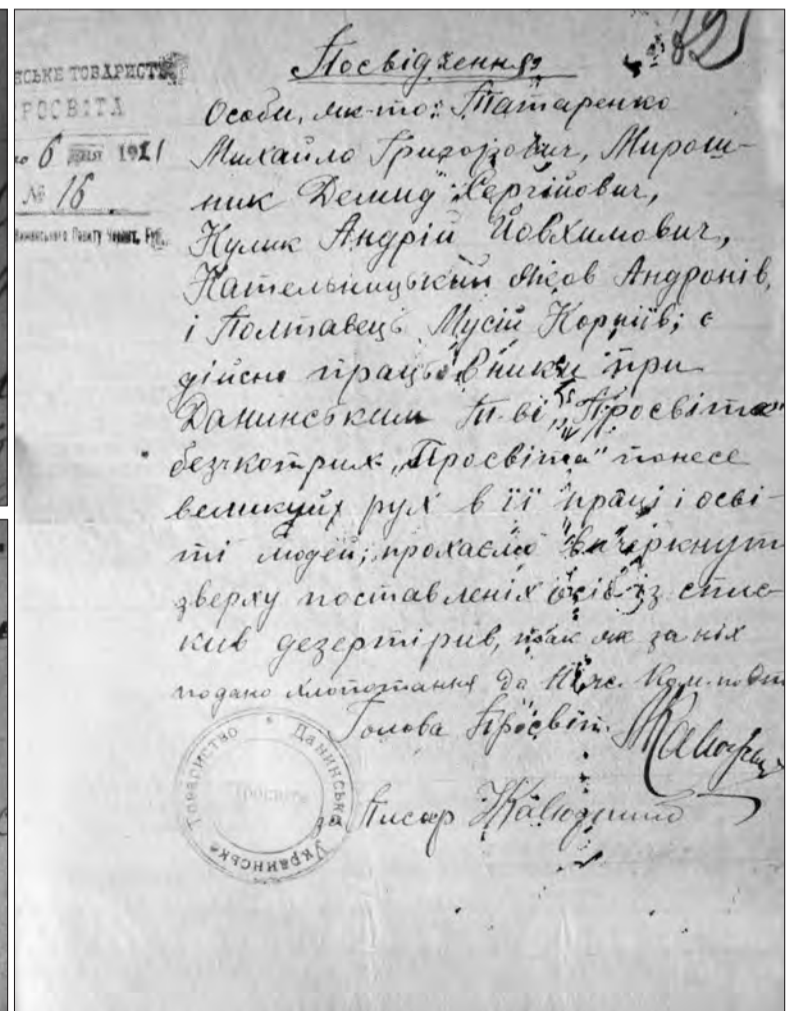 82
Посвідчення
НСЬКЕ ТОВАРИСТ
РОСВІТА
6 1921
№ 16
Особи, як-то: Татаренко
Михайло Григорович, Мирош-
ник Демид Сергійович,
Кулик Андрій Йовхимович,
Кательницький Яков Андронів,
і Полтавець Мусій Корніїв; є
дійсно працьовники при
Данинським Т-ві „Просвіта"
безчкотрих „Просвіта" понесе
рух в її праці і осві-
ті людей; прохаємо вичеркнут
зверху поставленіх осіб із спис-
кив дезертірив, так як за ніх
подано клопотання до
Голова Просвіт.
за Писар
Українське Товариство Данинська
Просвіта